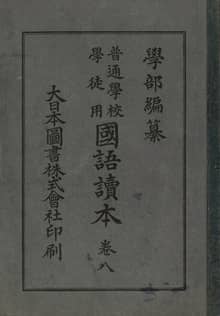 學部編纂
普通學校
學徒用
國語讀本 卷八
大日本圖書株式會社印刷